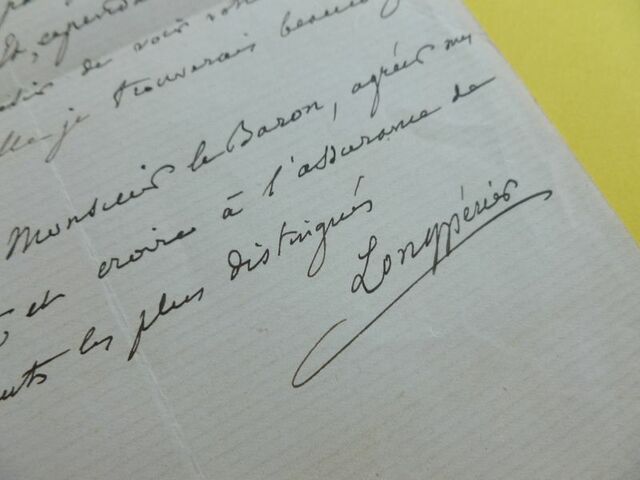 cependant
de voir
je trouverais beaucoup
Monsieur le Baron, agréer mes
et croire à l'assurance de
les plus distingués
Longpérier